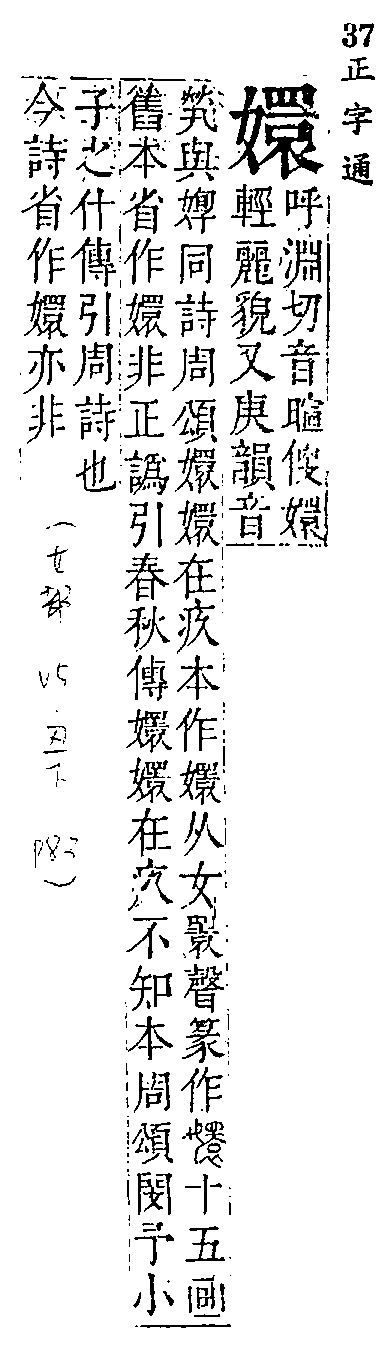 37正字通
嬛
呼淵切音暄㑪嬛
輕麗貌又庚韻音
煢與婢同詩周頌嬛嬛在疚本作嬛从女睘聲篆作十五画
舊本省作嬛非正譌引春秋傳嬛嬛在疚不知本周頌閔予小
子之什傳引周詩也
今詩省作嬛亦非
(女部 V5
P83)